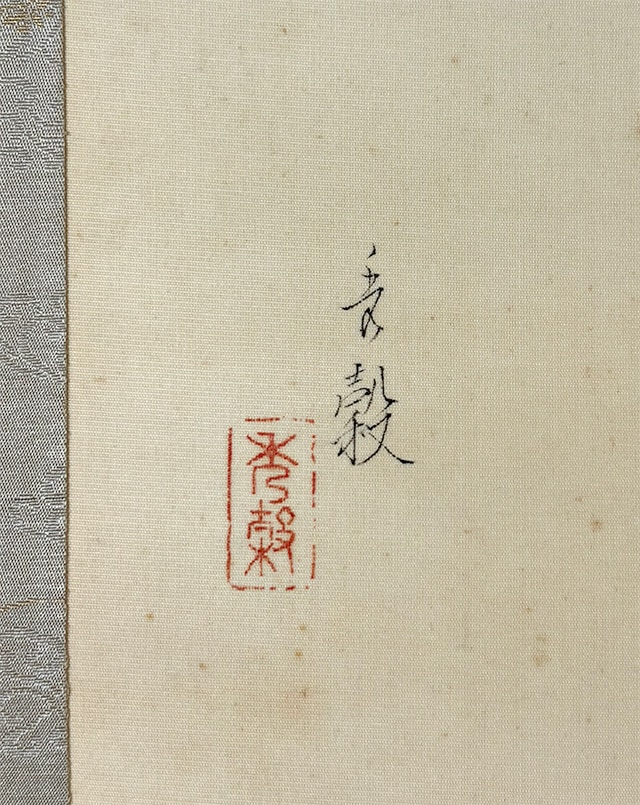 秀穀
秀穀